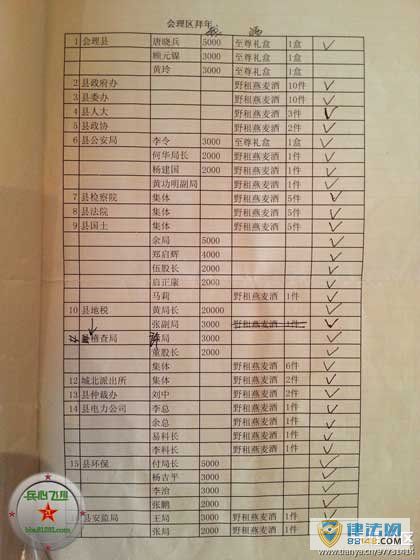 会理区拜年
钱 酒
1 会理县 唐晓兵 5000 至尊礼盒 1盒 ✓
顾元锒 3000 至尊礼盒 1盒
黄玲 3000 至尊礼盒 1盒 ✓
2 县政府办 野租燕麦酒 10件 ✓
3 县委办 野租燕麦酒 10件 ✓
4 县人大 野租燕麦酒 3件 ✓
5 县政协 野租燕麦酒 2件 ✓
6 县公安局 李令 3000 至尊礼盒 1盒 ✓
何华局长 2000 野租燕麦酒 1件 ✓
杨建国 2000 野租燕麦酒 1件 ✓
黄功明副局 野租燕麦酒 1件 ✓
7 县检察院 集体 野租燕麦酒 5件 ✓
8 县法院 集体 野租燕麦酒 5件 ✓
9 县国土 集体 野租燕麦酒 5件 ✓
余局 5000 ✓
郑启辉 4000 ✓
伍股长 2000 ✓
启正康 2000 ✓
马莉 野租燕麦酒 1件 ✓
10 县地税 黄局长 20000 ✓
张副局 3000 野租燕麦酒 1件 ✓
稽查局 局 3000 ✓
董股长 2000 ✓
集体 野租燕麦酒 6件 ✓
12 城北派出所 集体 野租燕麦酒 2件 ✓
13 县仲裁办 刘中 野租燕麦酒 2件 ✓
14 县电力公司 李总 野租燕麦酒 1件 ✓
余总 野租燕麦酒 1件 ✓
易科长 野租燕麦酒 1件 ✓
李科长 野租燕麦酒 1件 ✓
15 县环保 付局长 5000 ✓
杨吉平 3000 ✓
李治 3000 ✓
张鹏 2000 ✓
县安监局 王局 3000 野租燕麦酒 1件 ✓
张局 2000 野租燕麦酒 1件 ✓
民心飞扬
bbs81351.com
律法网
88148.com
www.tianya.cn/9773